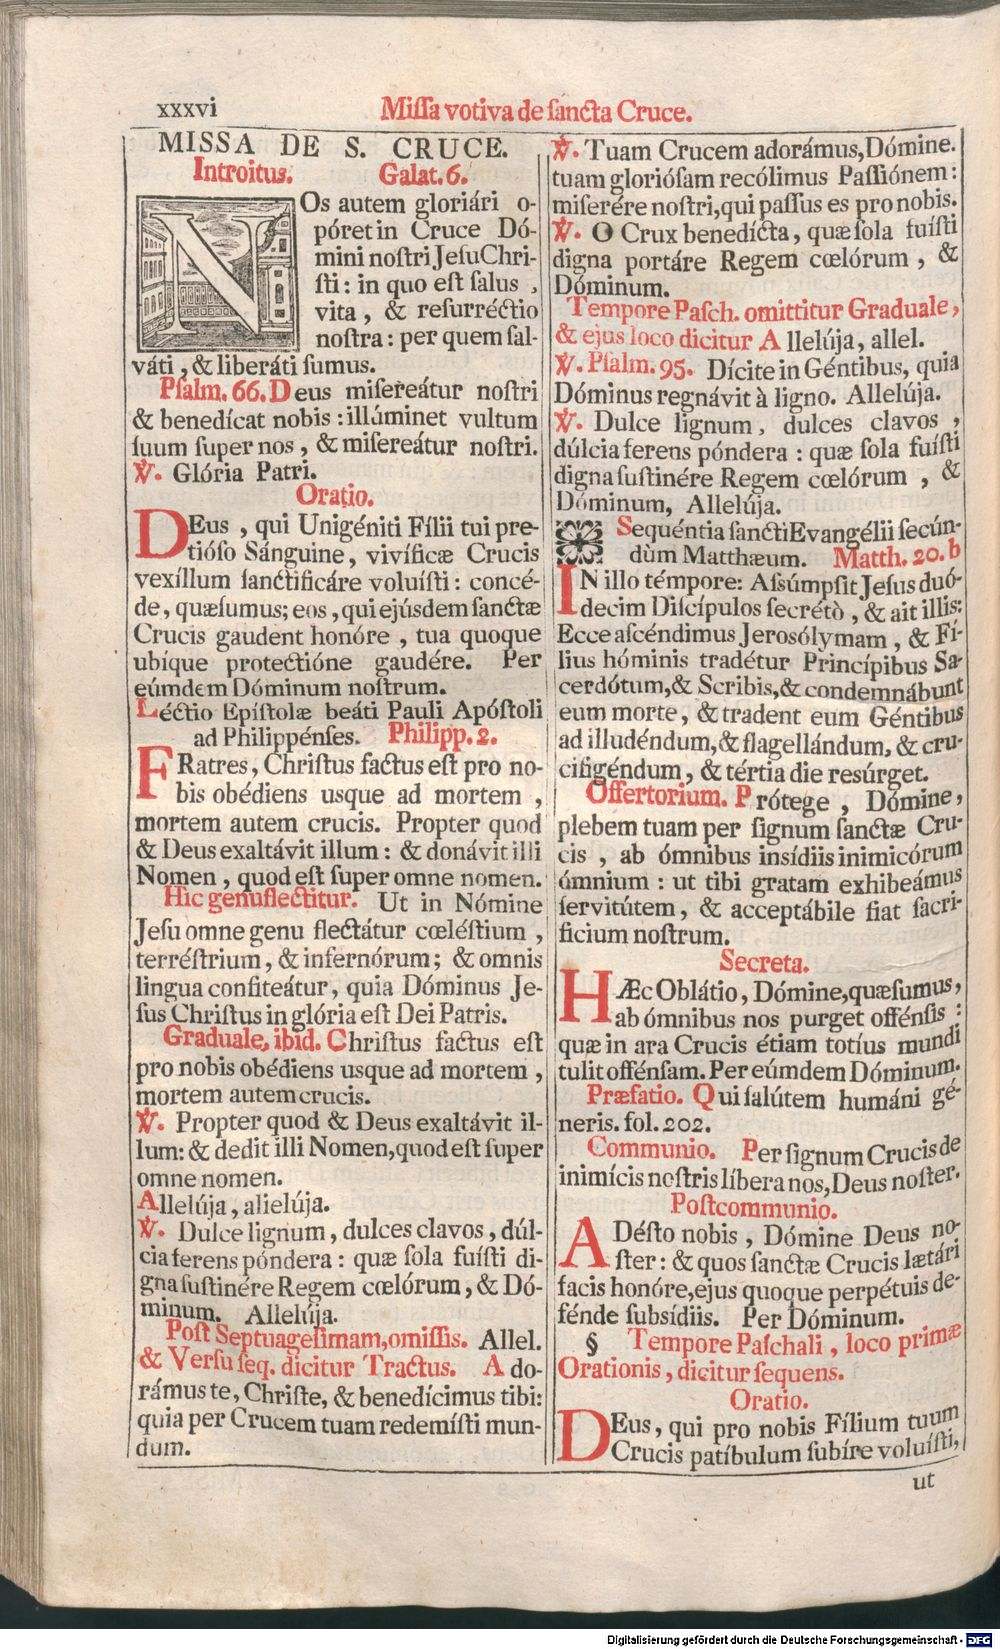 xxxvi
Missa votiva de sancta Cruce.
MISSA DE S. CRUCE.
Introitus. Galat. 6.
NOs autem gloriári o-
póret in Cruce Dó-
mini nostri Jesu Chri-
sti: in quo est salus,
vita, & resurréctio
nostra: per quem sal-
váti, & liberáti sumus.
Psalm. 66. Deus misereátur nostri
& benedícat nobis: illúminet vultum
suum super nos, & misereátur nostri.
℣. Glória Patri.
Oratio.
DEus, qui Unigéniti Fílii tui pre-
tióso Sánguine, vivíficæ Crucis
vexíllum sanctificáre voluísti: concé-
de, quæsumus; eos, qui ejúsdem sanctæ
Crucis gaudent honóre, tua quoque
ubíque protectióne gaudére. Per
eúmdem Dóminum nostrum.
Léctio Epístolæ beáti Pauli Apóstoli
ad Philippénses. Philipp. 2.
FRatres, Christus factus est pro no-
bis obédiens usque ad mortem,
mortem autem crucis. Propter quod
& Deus exaltávit illum: & donávit illi
Nomen, quod est super omne nomen.
Hic genuflectitur. Ut in Nómine
Jesu omne genu flectátur cœléstium,
terréstrium, & infernórum; & omnis
lingua confiteátur, quia Dóminus Je-
sus Christus in glória est Dei Patris.
Graduale, ibid. Christus factus est
pro nobis obédiens usque ad mortem,
mortem autem crucis.
℣. Propter quod & Deus exaltávit il-
lum: & dedit illi Nomen, quod est super
omne nomen.
Allelúja, allelúja.
℣. Dulce lignum, dulces clavos, dúl-
cia ferens póndera: quæ sola fuísti di-
gna sustinére Regem cœlórum, & Dó-
minum. Allelúja.
Post Septuagesimam, omissis. Allel.
& Versu seq. dicitur Tractus. Ado-
rámus te, Christe, & benedícimus tibi:
quia per Crucem tuam redemísti mun-
dum.
℣. Tuam Crucem adorámus, Dómine.
tuam gloriósam recólimus Passiónem:
miserére nostri, qui passus es pro nobis.
℣. O Crux benedícta, quæ sola fuísti
digna portáre Regem cœlórum, &
Dóminum.
Tempore Pasch. omittitur Graduale,
& ejus loco dicitur Allelúja, allel.
℣. Psalm. 95. Dícite in Géntibus, quia
Dóminus regnávit à ligno. Allelúja.
℣. Dulce lignum, dulces clavos,
dúlcia ferens póndera: quæ sola fuísti
digna sustinére Regem cœlórum, &
Dóminum, Allelúja.
Sequéntia sancti Evangélii secún-
dùm Matthæum. Matth. 20. b
IN illo témpore: Assúmpsit Jesus duó-
decim Discípulos secrétò, & ait illis:
Ecce ascéndimus Jerosólymam, & Fí-
lius hóminis tradétur Princípibus Sa-
cerdótum, & Scribis, & condemnábunt
eum morte, & tradent eum Géntibus
ad illudéndum, & flagellándum, & cru-
cifigéndum, & tértia die resúrget.
Offertorium. Prótege, Dómine,
plebem tuam per signum sanctæ Cru-
cis, ab ómnibus insídiis inimicórum
ómnium: ut tibi gratam exhibeámus
servitútem, & acceptábile fiat sacri-
ficium nostrum.
Secreta.
HÆc Oblátio, Dómine, quæsumus,
ab ómnibus nos purget offénsis:
quæ in ara Crucis étiam totíus mundi
tulit offénsam. Per eúmdem Dóminum.
Præfatio. Qui salútem humáni gé-
neris. fol. 202.
Communio. Per signum Crucis de
inimícis nostris líbera nos, Deus noster.
Postcommunio.
ADésto nobis, Dómine Deus no-
ster: & quos sanctæ Crucis lætári
facis honóre, ejus quoque perpétuis de-
fénde subsídiis. Per Dóminum.
§ Tempore Paschali, loco primæ
Orationis, dicitur sequens.
Oratio.
DEus, qui pro nobis Fílium tuum
Crucis patíbulum subíre voluísti,
ut
Digitalisierung gefördert durch die Deutsche Forschungsgemeinschaft - DFG